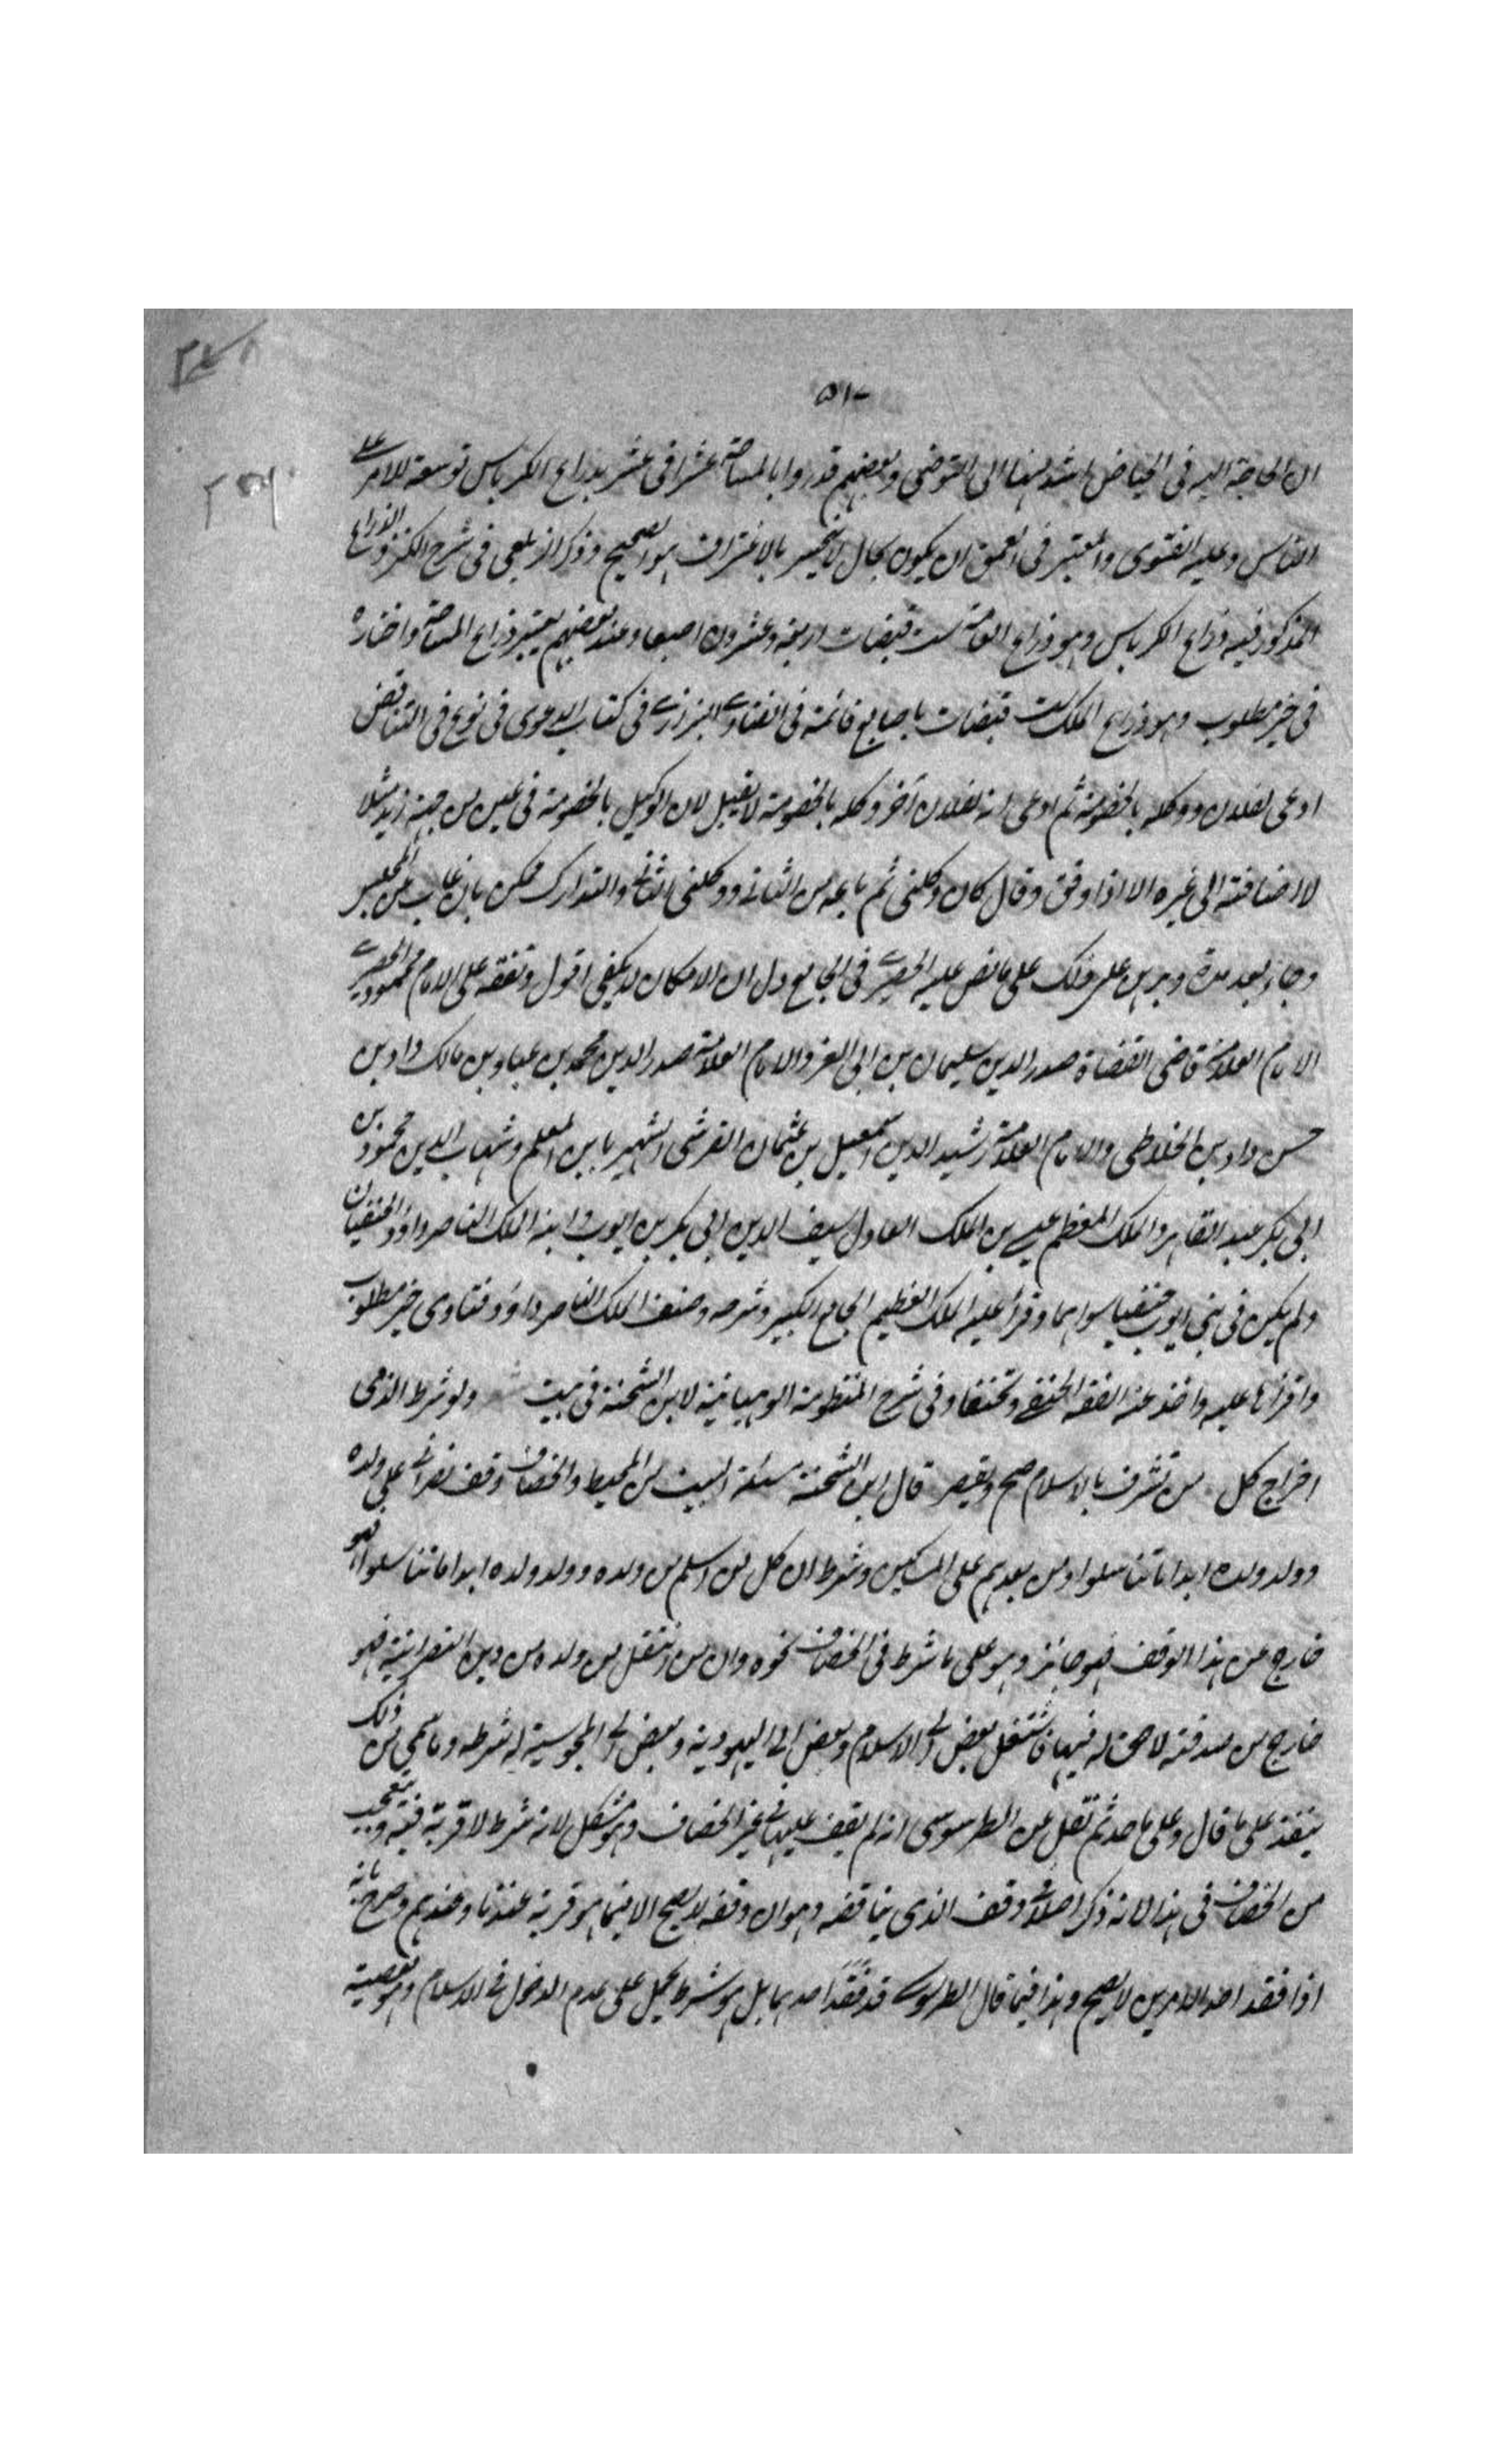 ٥١٠
ان الحاجة اليه فى الحياض اشد منها الى التوضى وبعضهم قدروا بالمساحة عشرا فى عشر بذراع الكرباس توسعة للامر على
الناس وعليه الفتوى والمعتبر فى العمق ان يكون بحال لا ينحسر بالاغتراف هو الصحيح وذكر الزيلعى فى شرح الكنز والذراع
المذكور فيه ذراع الكرباس وهو ذراع العامة ست قبضات اربعة وعشرون اصبعا وعند بعضهم يعتبر ذراع المساحة واختاره
فى خير مطلوب وهو ذراع الملك ست قبضات باصابع قائمة فى الفتاوى البزازى فى كتاب الدعوى فى نوع فى التناقض
ادعى لفلان ووكله بالخصومة ثم ادعى انه لفلان آخر وكله بالخصومة لا يقبل لان الوكيل بالخصومة فى عين من جهة زيد مثلا
لا اضافته الى غيره الا اذا وفق وقال كان وكلنى ثم باعه من الثانى ووكلنى الثانى والتدارك ممكن بان غاب عن المجلس
وجاء بعد مدة وبرهن على ذلك على ما نص عليه الحصيرى فى الجامع دل ان الامكان لا يكفى اقول وتفقه على الامام محمود الحصيرى
الامام العلامة قاضى القضاة صدر الدين سليمان بن ابى العز والامام العلامة صدر الدين محمد بن عباد بن مالك داد بن
حسن داد بن الخلاطى والامام العلامة رشيد الدين اسمعيل بن عثمان القرشى الشهير بابن المعلم وشهاب الدين محمود بن
ابى بكر عبد القاهر والملك المعظم عيسى بن الملك العادل سيف الدين ابى بكر بن ايوب وابنه الملك الناصر داود الحنفيان
ولم يكن فى بنى ايوب حنفيا سواهما وقرأ عليه الملك العظيم الجامع الكبير وشرحه وصنف الملك الناصر داود فتاوى خير مطلوب
واقرأها عليه واخذ عنه الفقه الحنفى وتحنفا وفى شرح المنظومة الوهبانية لابن الشحنة فى بيت ولو شرط الذمى
اخراج كل من تشرف بالاسلام صح ويقصر قال ابن الشحنة مسئلة البيت من المحيط والخصاف وقف نصرانى على ولده
وولد ولده ابدا ما تناسلوا ومن بعدهم على المساكين وشرط ان كل من اسلم من ولده وولد ولده ابدا ما تناسلوا فهو
خارج عن هذا الوقف فهو جائز وهو على ما شرط فى الخصاف نحوه وان من انتقل من ولده من دين النصرانية فهو
خارج من صدقته لا حق له فيها فانتقل بعض الى الاسلام وبعض الى اليهودية وبعض الى المجوسية له شرطه وما سمى من ذلك
ينفذ على ما قال وعلى ما حد ثم نقل عن الطرسوسى انه لم يقف عليها فى غير الخصاف وهو مشكل لانه شرط لا قربة فيه وتعجب
من الخصاف فى هذا لانه ذكر اصلا فى وقف الذمى يناقضه وهو ان وقفه لا يصح الا فيما هو قربة عندنا وعندهم وصرح بانه
اذا فقد احد الامرين لا يصح وهذا فيما قال الطرسوسى قد فقد احدهما بل هو شرط يحمل على عدم الدخول فى الاسلام وهو معصية